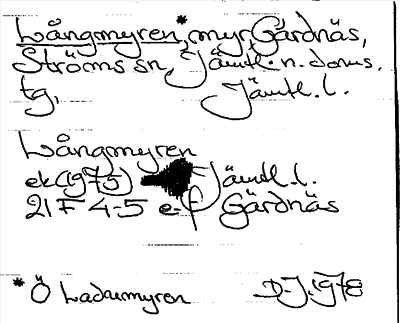 Långmyren*, myr, Gärdnäs,
Ströms sn, Jämtl. n. doms.
tg, Jämtl. l.
Långmyren
ek(1975) Jämtl. l.
21F 4-5 e-f Gärdnäs
* Ö Ladumyren D-J. 1978